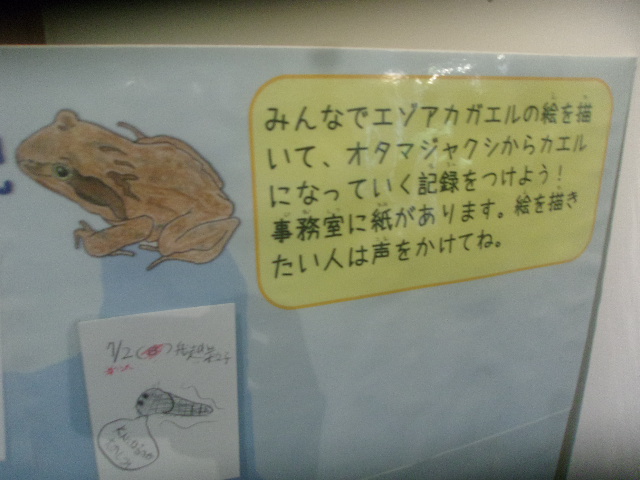 みんなでエゾアカガエルの絵を描
いて、オタマジャクシからカエル
になっていく記録をつけよう！
事務室に紙があります。絵を描き
たい人は声をかけてね。
7/2